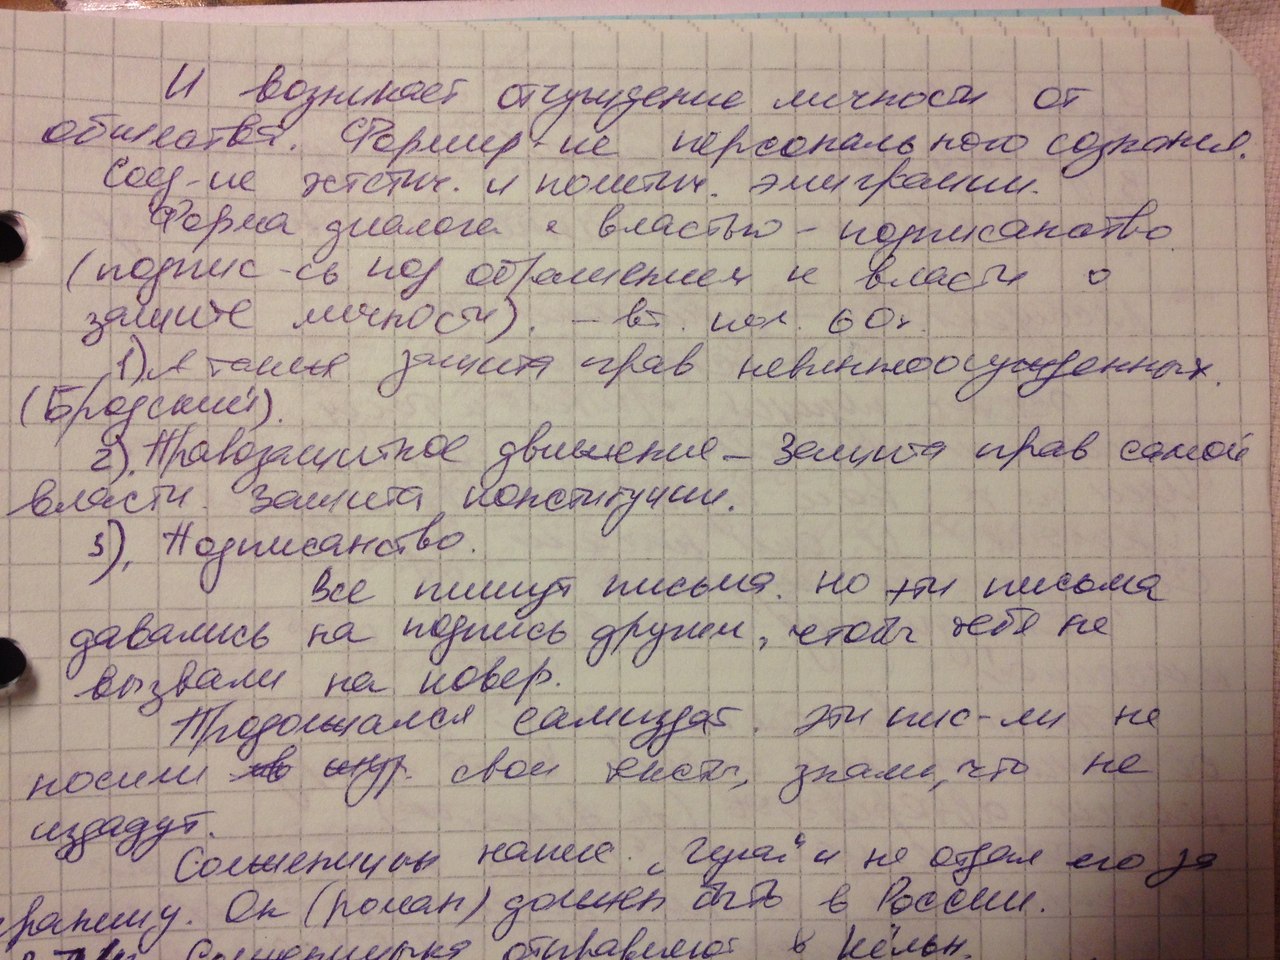 И возникает отчуждение личности от
общества. Формир-ие персонального сознания.
Созд-ие эстетич. и политич. эмиграции.
Форма диалога с властью - подписанство
(подпис-сь под обращением к власти о
защите личности). - вт. пол. 60х.
1) А также защита прав невинноосужденных.
(Бродский).
2). Правозащитное движение - защита прав самой
власти. Защита конституции.
3), Подписанство.
Все пишут письма. но эти письма
давались на подпись другим, чтобы тебя не
вызвали на ковер.
Продолжался самиздат. эти пис-ли не
носили в жур. свои тексты, знали, что не
издадут.
Солженицын напис. "Гулаг" и не отдал его за
границу. Он (роман) должен быть в России.
Солженицына отправляют в Кёльн.